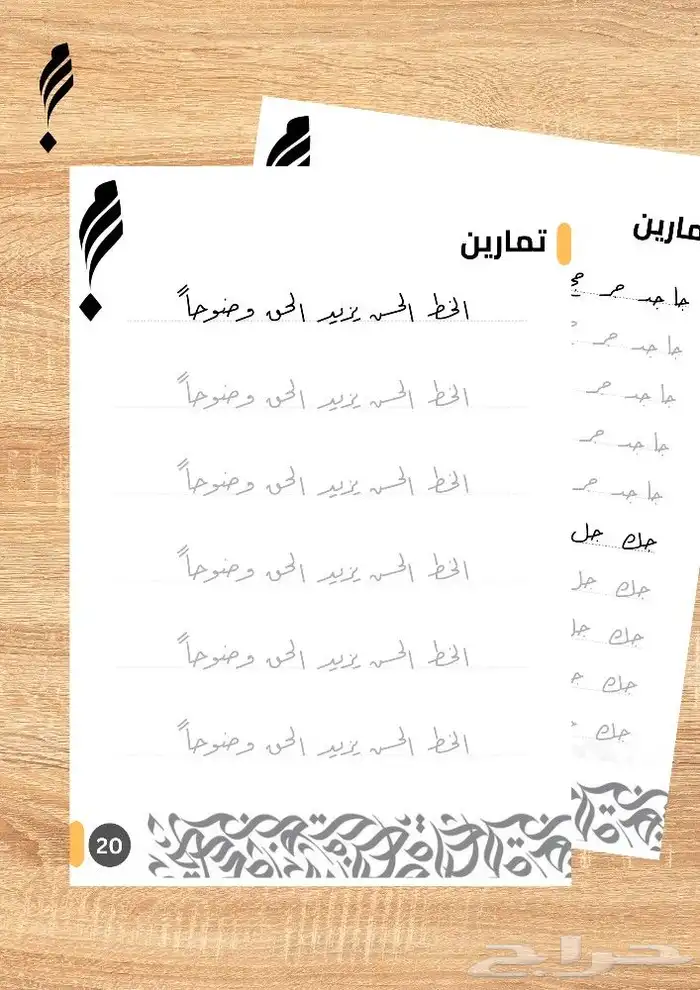 تمارين
الخط الحسن يزيد الحق وضوحاً
الخط الحسن يزيد الحق وضوحاً
الخط الحسن يزيد الحق وضوحاً
الخط الحسن يزيد الحق وضوحاً
الخط الحسن يزيد الحق وضوحاً
الخط الحسن يزيد الحق وضوحاً
20
تمارين
جا جد جر
جا جد جر
جا جد جر
جا جد جر
جا جد جر
جك جل
جك جل
جك جل
جك
جك
حراج